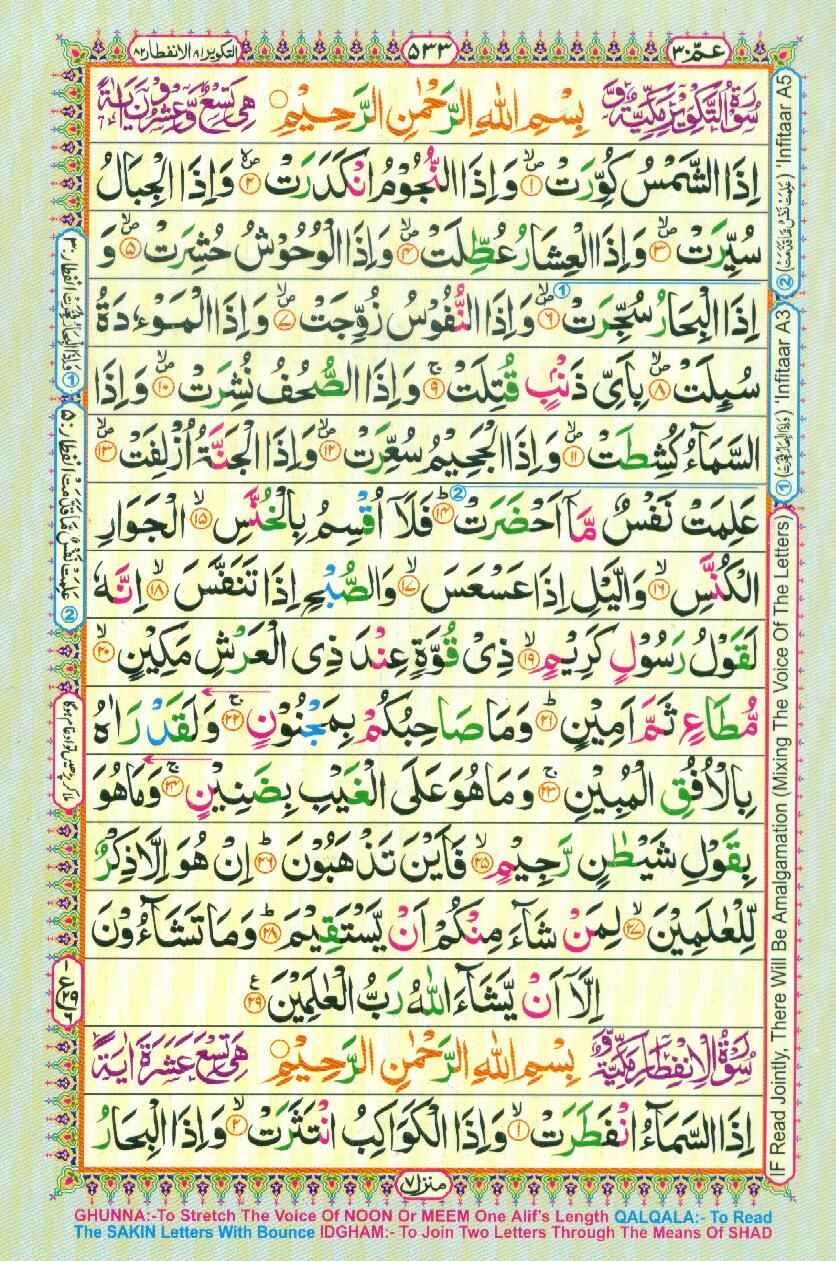 عمّ ٣٠
٥٣٣
التكوير ٨١ الانفطار ٨٢
سُوْرَةُ التَّكْوِيْرِ مَكِّيَّةٌ وَّ
بِسْمِ اللهِ الرَّحْمٰنِ الرَّحِيْمِ
هِيَ تِسْعٌ وَّعِشْرُوْنَ اٰيَةً
اِذَا الشَّمْسُ كُوِّرَتْ ۝١ وَاِذَا النُّجُوْمُ انْكَدَرَتْ ۝٢ وَاِذَا الْجِبَالُ
سُيِّرَتْ ۝٣ وَاِذَا الْعِشَارُ عُطِّلَتْ ۝٤ وَاِذَا الْوُحُوْشُ حُشِرَتْ ۝٥ وَ
اِذَا الْبِحَارُ سُجِّرَتْ ۝٦ وَاِذَا النُّفُوْسُ زُوِّجَتْ ۝٧ وَاِذَا الْمَوْءٗدَةُ
سُىِٕلَتْ ۝٨ بِاَىِّ ذَنْۢبٍ قُتِلَتْ ۝٩ وَاِذَا الصُّحُفُ نُشِرَتْ ۝١٠ وَاِذَا
السَّمَآءُ كُشِطَتْ ۝١١ وَاِذَا الْجَحِيْمُ سُعِّرَتْ ۝١٢ وَاِذَا الْجَنَّةُ اُزْلِفَتْ ۝١٣
عَلِمَتْ نَفْسٌ مَّاۤ اَحْضَرَتْ ۝١٤ فَلَاۤ اُقْسِمُ بِالْخُنَّسِ ۝١٥ الْجَوَارِ
الْكُنَّسِ ۝١٦ وَالَّيْلِ اِذَا عَسْعَسَ ۝١٧ وَالصُّبْحِ اِذَا تَنَفَّسَ ۝١٨ اِنَّهٗ
لَقَوْلُ رَسُوْلٍ كَرِيْمٍ ۝١٩ ذِىْ قُوَّةٍ عِنْدَ ذِى الْعَرْشِ مَكِيْنٍ ۝٢٠
مُّطَاعٍ ثَمَّ اَمِيْنٍ ۝٢١ وَمَا صَاحِبُكُمْ بِمَجْنُوْنٍ ۝٢٢ وَلَقَدْ رَاٰهُ
بِالْاُفُقِ الْمُبِيْنِ ۝٢٣ وَمَا هُوَ عَلَى الْغَيْبِ بِضَنِيْنٍ ۝٢٤ وَمَا هُوَ
بِقَوْلِ شَيْطٰنٍ رَّجِيْمٍ ۝٢٥ فَاَيْنَ تَذْهَبُوْنَ ۝٢٦ اِنْ هُوَ اِلَّا ذِكْرٌ
لِّلْعٰلَمِيْنَ ۝٢٧ لِمَنْ شَآءَ مِنْكُمْ اَنْ يَّسْتَقِيْمَ ۝٢٨ وَمَا تَشَآءُوْنَ
اِلَّاۤ اَنْ يَّشَآءَ اللهُ رَبُّ الْعٰلَمِيْنَ ۝٢٩
سُوْرَةُ الْاِنْفِطَارِ مَكِّيَّةٌ وَّ
بِسْمِ اللهِ الرَّحْمٰنِ الرَّحِيْمِ
هِيَ تِسْعَ عَشَرَةَ اٰيَةً
اِذَا السَّمَآءُ انْفَطَرَتْ ۝١ وَاِذَا الْكَوَاكِبُ انْتَثَرَتْ ۝٢ وَاِذَا الْبِحَارُ
منزل ٧
② (عَلِمَتْ نَفْسٌ مَّا قَدَّمَتْ) 'Infitaar A5
① (وَاِذَا الْبِحَارُ فُجِّرَتْ) 'Infitaar A3
IF Read Jointly, There Will Be Amalgamation (Mixing The Voice Of The Letters)
① وَاِذَا الْبِحَارُ فُجِّرَتْ انفطار ٣
② عَلِمَتْ نَفْسٌ مَّا قَدَّمَتْ انفطار ٥
GHUNNA:-To Stretch The Voice Of NOON Or MEEM One Alif's Length QALQALA:- To Read
The SAKIN Letters With Bounce IDGHAM:- To Join Two Letters Through The Means Of SHAD